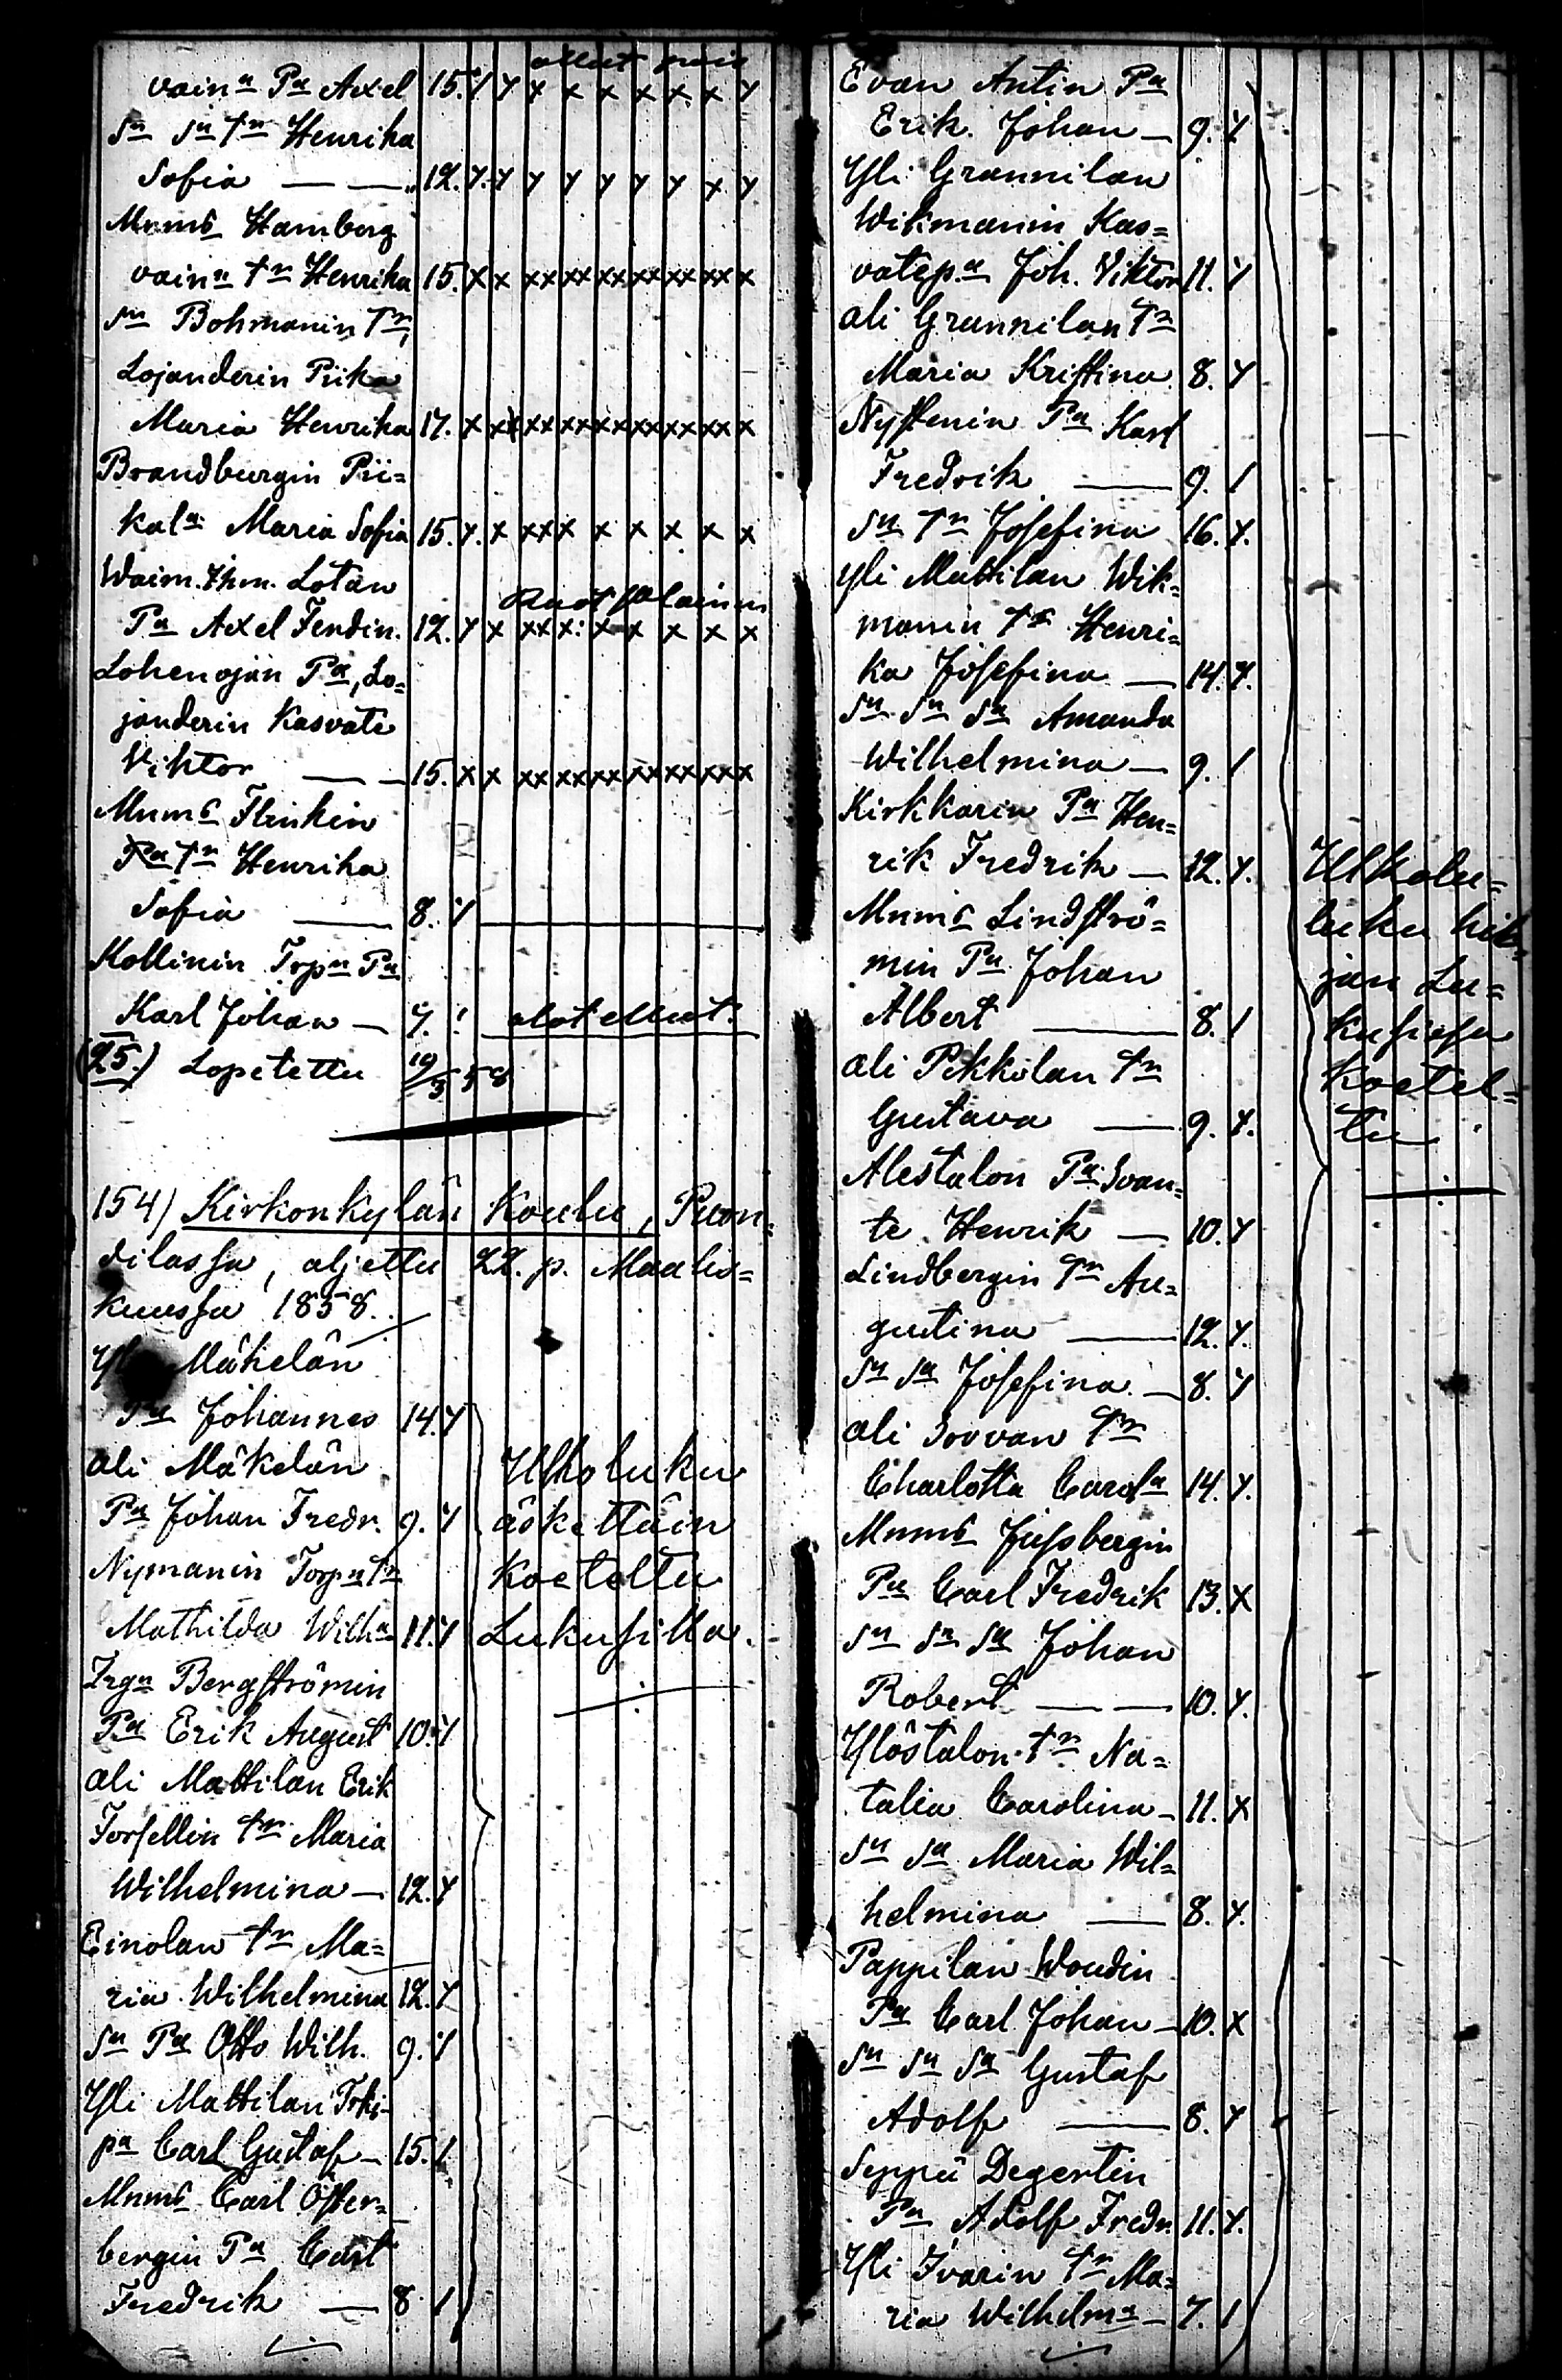 ollut pois
vainᵃ Pᵃ Axel 15. / y x x x x x x y
Sⁿ Sⁿ Tʳ Henrika
Sofia — — 12. y. y y y y y y x y
Mnms Hamberg
vainⁿ Tʳ Henrika 15. x x xx xx xx xx xx xx x
Sⁿ Bohmanin Tʳ,
Lojanderin Piika
Maria Henrika 17. x xx xx xx xx xx xx xx x
Brandburgin Pii=
kalᵃ Maria Sofia 15. y. x xx x x x x x x
Waim. Lotan
Ruotsalainen
Pᵃ Axel Ferdin. 12. y x xx x: x x x x x
Lohenojan Pᵃ, Lo=
janderin Kasvate
Viktor — — 15. x x xx xx xx xx xx xx x
Mnms Flinkin
Tʳ Henrika
Sofia — 8. y
Kollinin Torpⁿ Pᵃ
Karl Johan — 7. ! olot ollut.
(25.) Lopetettu 19/3 58
154) Kirkonkylän Koulu, Puon=
dilassa, aljettu 22. p. Maalis=
kuussa 1858.
Yli Mäkelän
Pᵃ Johannes 14. y
Ali Mäkelän Ulkoluku
Pᵃ Johan Fredr. 9. y äskettäin
Nymanin Torpⁿ Tʳ Koeteltu
Mathilda Wilhᵃ 11. y Lukusilla.
Bergströmin
Pᵃ Erik August 10. y
Ali Mattilan Erik
Forsellin Tʳ Maria
Wilhelmina — 12. y
Einolan Tʳ Ma=
ria Wilhelmina 12. y
Sⁿ Pᵃ Otto Wilh. 9. y
Yli Mattilan
pᵃ Carl Gustaf — 15. /
Mnms Carl Öster=
bergin Pᵃ Carl
Fredrik — 8. /
Evan Antin Pᵃ
Erik Johan — 9. y
Yli Grannilan
Wikmanin Kas=
vatep.ᵃ Joh. Viktor 11. y
Ali Grannilan Tʳ
Maria Kristina 8. y
Nystenin Pᵃ Karl
Fredrik — 9. /
Sⁿ Tʳ Josefina 16. y.
Yli Mattilan Wik=
manin Tʳ Henri=
ka Josefina — 14. y.
Sⁿ Sⁿ Sᵃ Amanda
Wilhelmina — 9. /
Kirkkarin Pᵃ Hen=
rik Fredrik — 12. y.
Mnms Lindströ=
min Pᵃ Johan
Albert — 8. /
Ali Pekkolan Tʳ
Gustava — 9. y.
Alestalon Pᵃ Svan=
te Henrik — 10. y
Lindbergin Tʳ Au=
gustina — 12. y.
Sⁿ Sᵃ Josefina — 8. y
Ali Sorvan Tʳ
Charlotta Carolᵃ 14. y.
Mnms Jussbergin
Pᵃ Carl Fredrik 13. x
Sⁿ Sⁿ Sᵃ Johan
Robert — — 10. y.
Ylöstalon Tʳ Na=
talia Carolina — 11. x
Sⁿ Sᵃ Maria Wil=
helmina — 8. y.
Pappilan Woudin
Pᵃ Carl Johan — 10. x
Sⁿ Sⁿ Sᵃ Gustaf
Adolf — 8. y
Seppä Degertin
Pᵃ Adolf Fredr. 11. y.
Yli Ivarin Tʳ Ma=
ria Wilhelmᵃ — 7. /
Ulkolu=
luku
jan Lu=
kusissa
Koetel=
tu